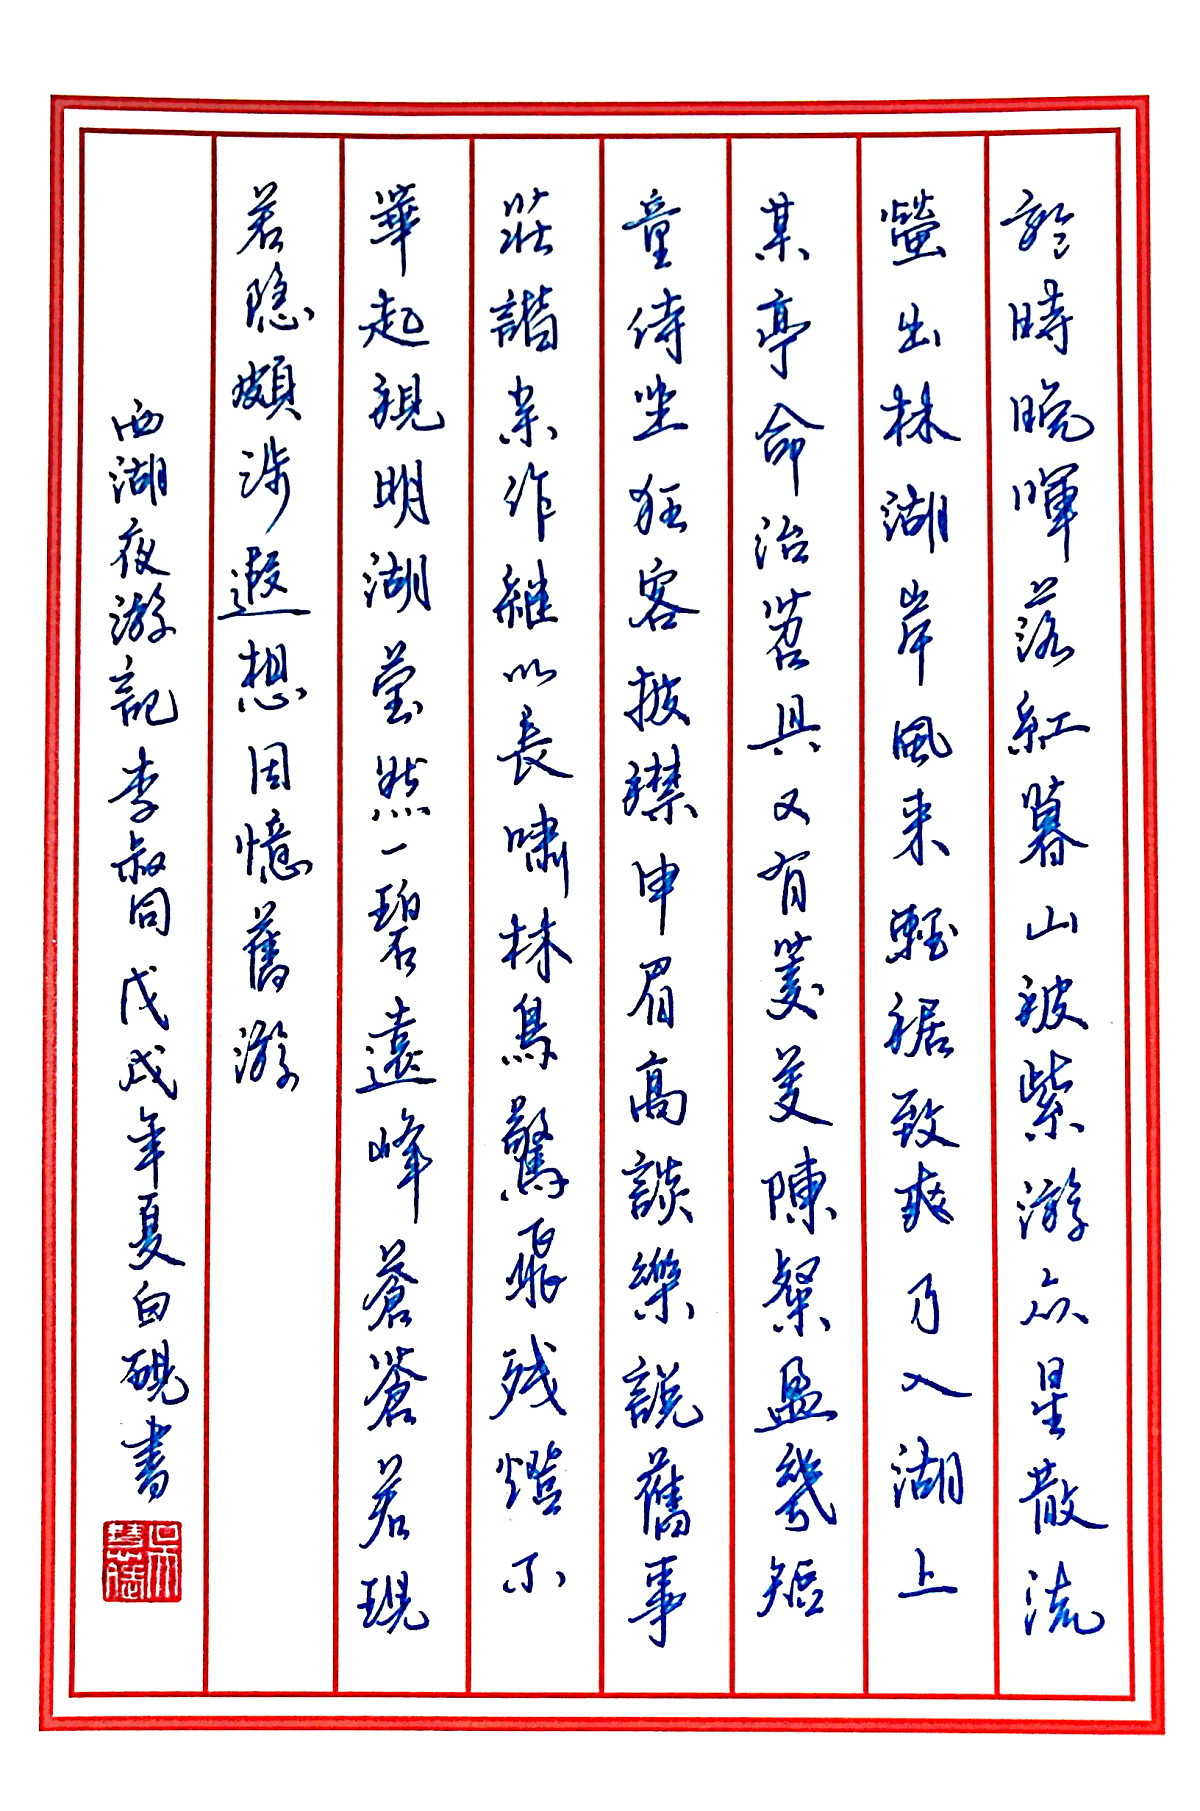 於時晚暉落紅暮山被紫游众星散流
螢出林湖岸風来輕裾致爽乃入湖上
某亭命治茗具又有菱芰陳粲盈幾短
童侍坐狂客披襟申眉高談樂說舊事
莊諧杂作継以長嘯林鳥驚飛残燈不
華起視明湖莹然一碧遠峰蒼蒼若現
若隐頗涉遐想因憶舊游
西湖夜游記李叔同戊戌年夏白硯書